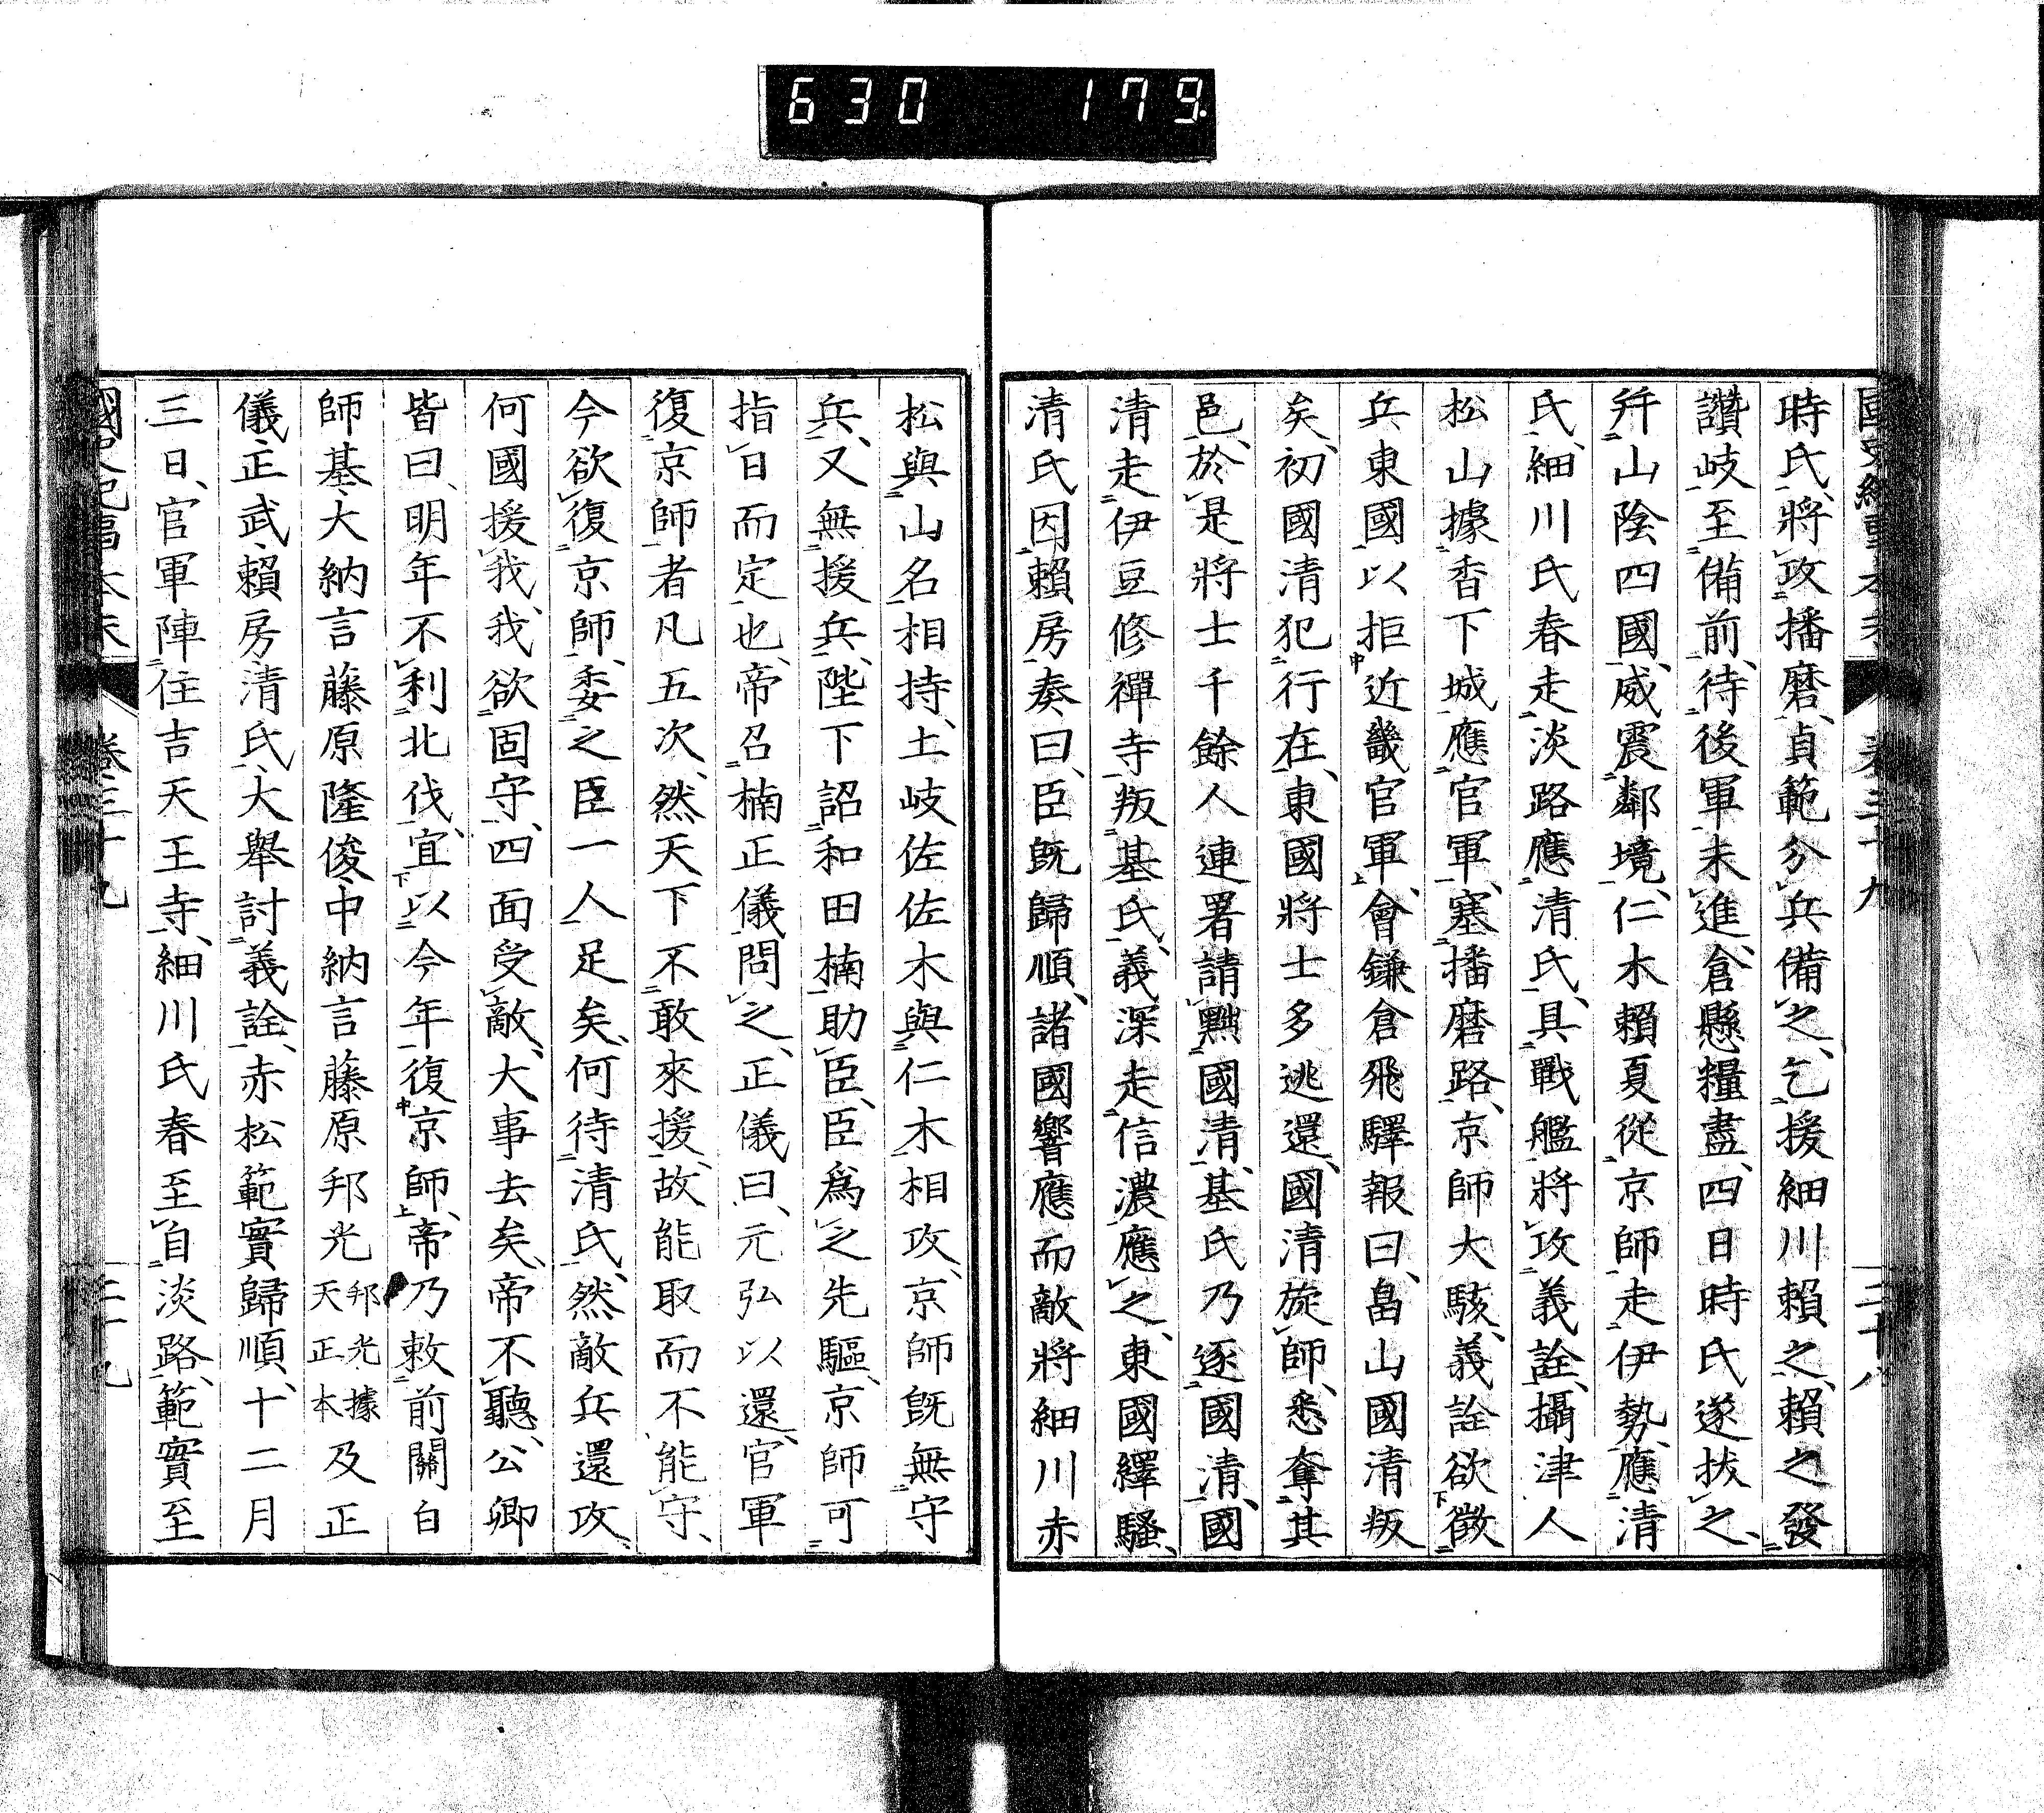 630 179
時氏、將攻播磨、貞範分兵備之、乞援細川賴之、賴之發
讚岐至備前、待後軍未進、倉懸糧盡、四日時氏遂拔之、
幷山陰四國、威震鄰境、仁木賴夏從京師走伊勢、應清
氏、細川氏春走淡路應清氏、具戰艦將攻義詮、攝津人
松山據香下城應官軍、塞播磨路、京師大駭、義詮欲徵
兵東國以拒近畿官軍、會鎌倉飛驛報曰、畠山國清叛
矣、初國清犯行在、東國將士多逃還、國清旋師、悉奪其
邑、於是將士千餘人連署請黜國清、基氏乃逐國清、國
清走伊豆修禪寺叛基氏、義深走信濃應之、東國繹騷、
清氏因賴房奏曰、臣既歸順、諸國響應而敵將細川赤
松與山名相持、土岐佐佐木與仁木相攻、京師既無守
兵、又無援兵、陛下詔和田楠助臣、臣爲之先驅、京師可
指日而定也、帝召楠正儀問之、正儀曰、元弘以還、官軍
復京師者凡五次、然天下不敢來援、故能取而不能守、
今欲復京師、委之臣一人足矣、何待清氏、然敵兵還攻、
何國援我、我欲固守、四面受敵、大事去矣、帝不聽、公卿
皆曰、明年不利北伐、宜以今年復京師、帝乃敕前關白
師基、大納言藤原隆俊、中納言藤原邦光邦光據天正本及正
儀、正武、賴房、清氏、大舉討義詮、赤松範實歸順、十二月
三日、官軍陣住吉天王寺、細川氏春至自淡路、範實至
卷三十九